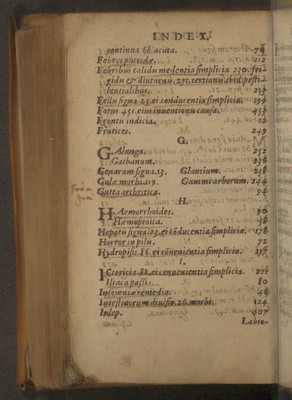 INDEX.
continua 68. acuta. 70
Febres putridæ. 112
Febribus calidis medentia simplicia 230. fri-
gidis & diuturnis. 231. tertianis ibid. pesti-
lentialibus. 233
Fellis signa. 23. ei conducentia simplicia. 239
Fotus 451. eius inuentionis causa. 453
Frontis indicia. 12
Frutices. 249
G.
GAlanga. 252
Galbanum. 238
Genarum signa. 13. Glaucium. 238
Gulæ morbi. 119. Gummi arborum. 244
Gutta arthritica. 94
H.
HAemorrhoides. 90
Hæmoptoica. 48
Hepatis signa. 23. ei cōducentia simplicia. 178
Horror in pilis. 72
Hydropisis. 86. ei cōuenientia simplicia. 217
I.
ICtericia. 88. ei conuenientia simplicia. 221
Iliaca passio. 80
Insomniæ remedia. 46
Intestinorum diuisio. 26. morbi. 124
Iulep. 407
Labio-